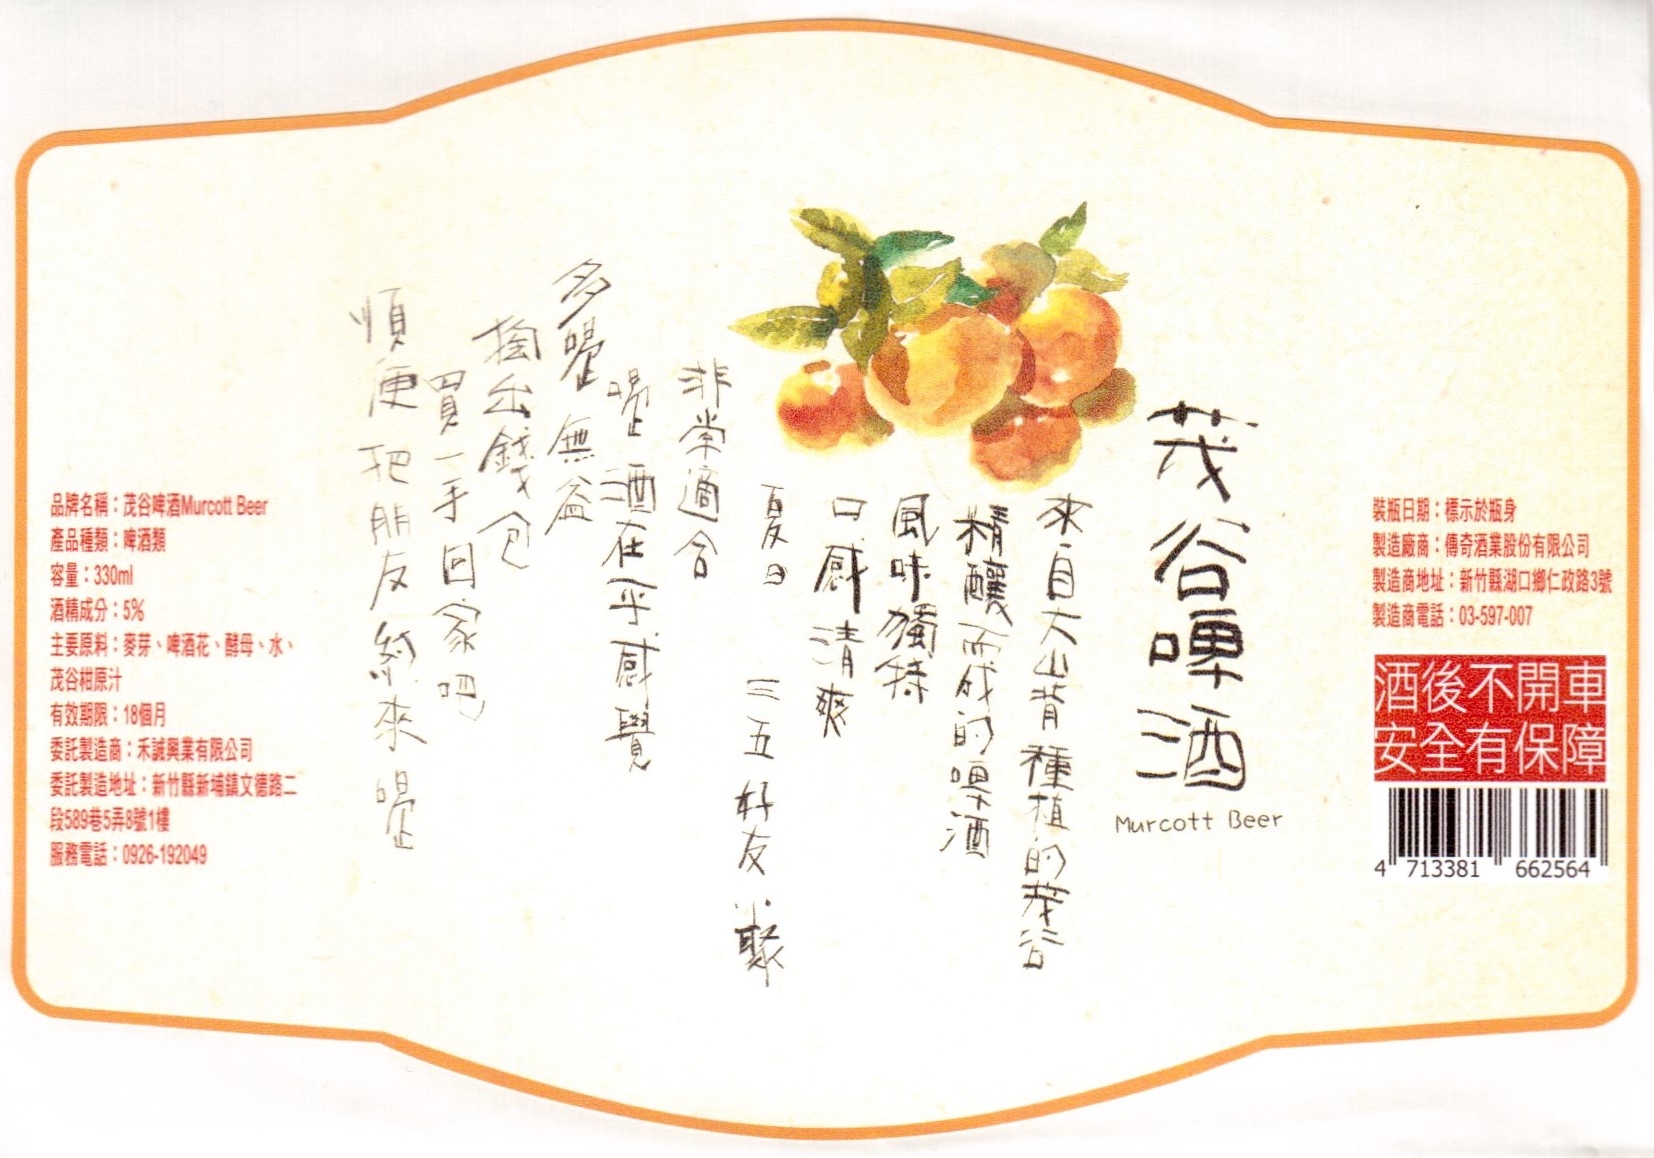 茂谷啤酒
Murcott Beer
來自大山背種植的茂谷
精釀而成的啤酒
風味獨特
口感清爽
夏日 三五好友小聚
非常適合
喝酒在乎感覺
多喝無益
掏出錢包
買一手回家吧
順便把朋友約來喝
品牌名稱：茂谷啤酒Murcott Beer
產品種類：啤酒類
容量：330ml
酒精成分：5%
主要原料：麥芽、啤酒花、酵母、水、
茂谷柑原汁
有效期限：18個月
委託製造商：禾誠興業有限公司
委託製造地址：新竹縣新埔鎮文德路二
段589巷5弄8號1樓
服務電話：0926-192049
裝瓶日期：標示於瓶身
製造廠商：傳奇酒業股份有限公司
製造商地址：新竹縣湖口鄉仁政路3號
製造商電話：03-597-007
酒後不開車
安全有保障
4 713381 662564